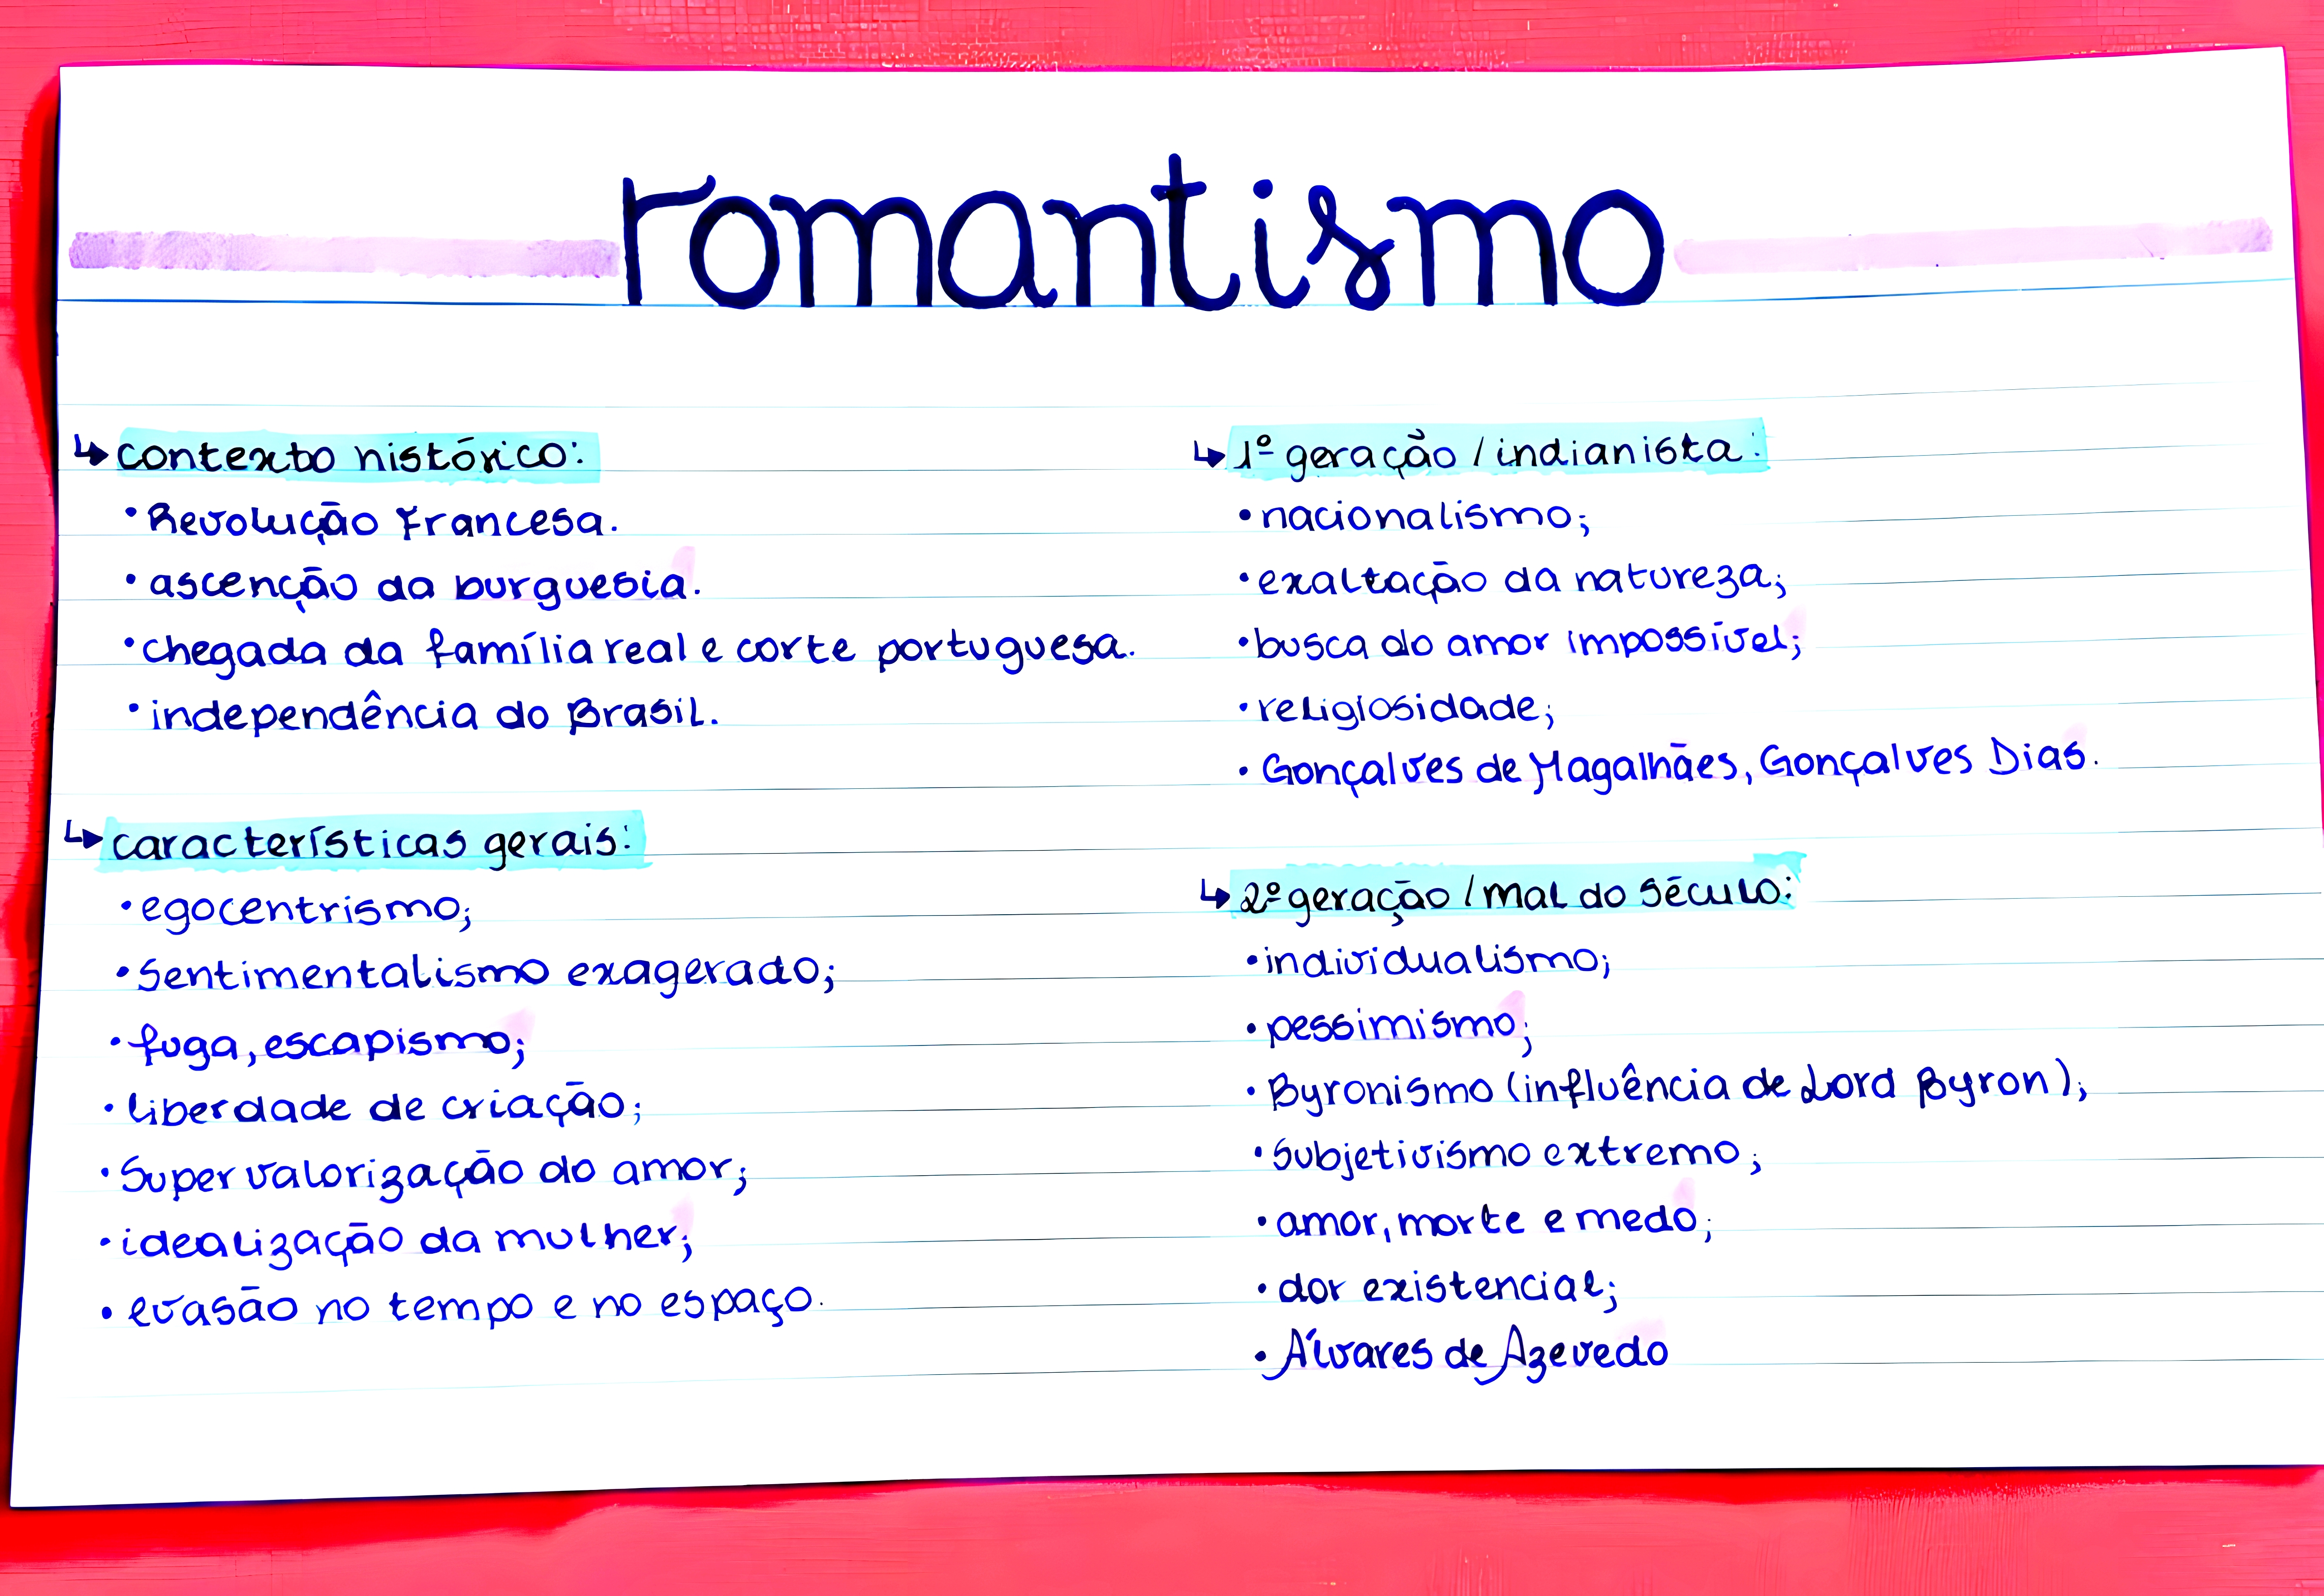 romantismo
↳ contexto histórico:
• Revolução Francesa.
• ascenção da burguesia.
• chegada da família real e corte portuguesa.
• independência do Brasil.
↳ características gerais:
• egocentrismo;
• Sentimentalismo exagerado;
• fuga, escapismo;
• liberdade de criação;
• Supervalorização do amor;
• idealização da mulher;
• evasão no tempo e no espaço.
↳ 1º geração / indianista:
• nacionalismo;
• exaltação da natureza;
• busca do amor impossível;
• religiosidade;
• Gonçalves de Magalhães, Gonçalves Dias.
↳ 2º geração / mal do século:
• individualismo;
• pessimismo;
• Byronismo (influência de Lord Byron);
• Subjetivismo extremo;
• amor, morte e medo;
• dor existencial;
• Álvares de Azevedo